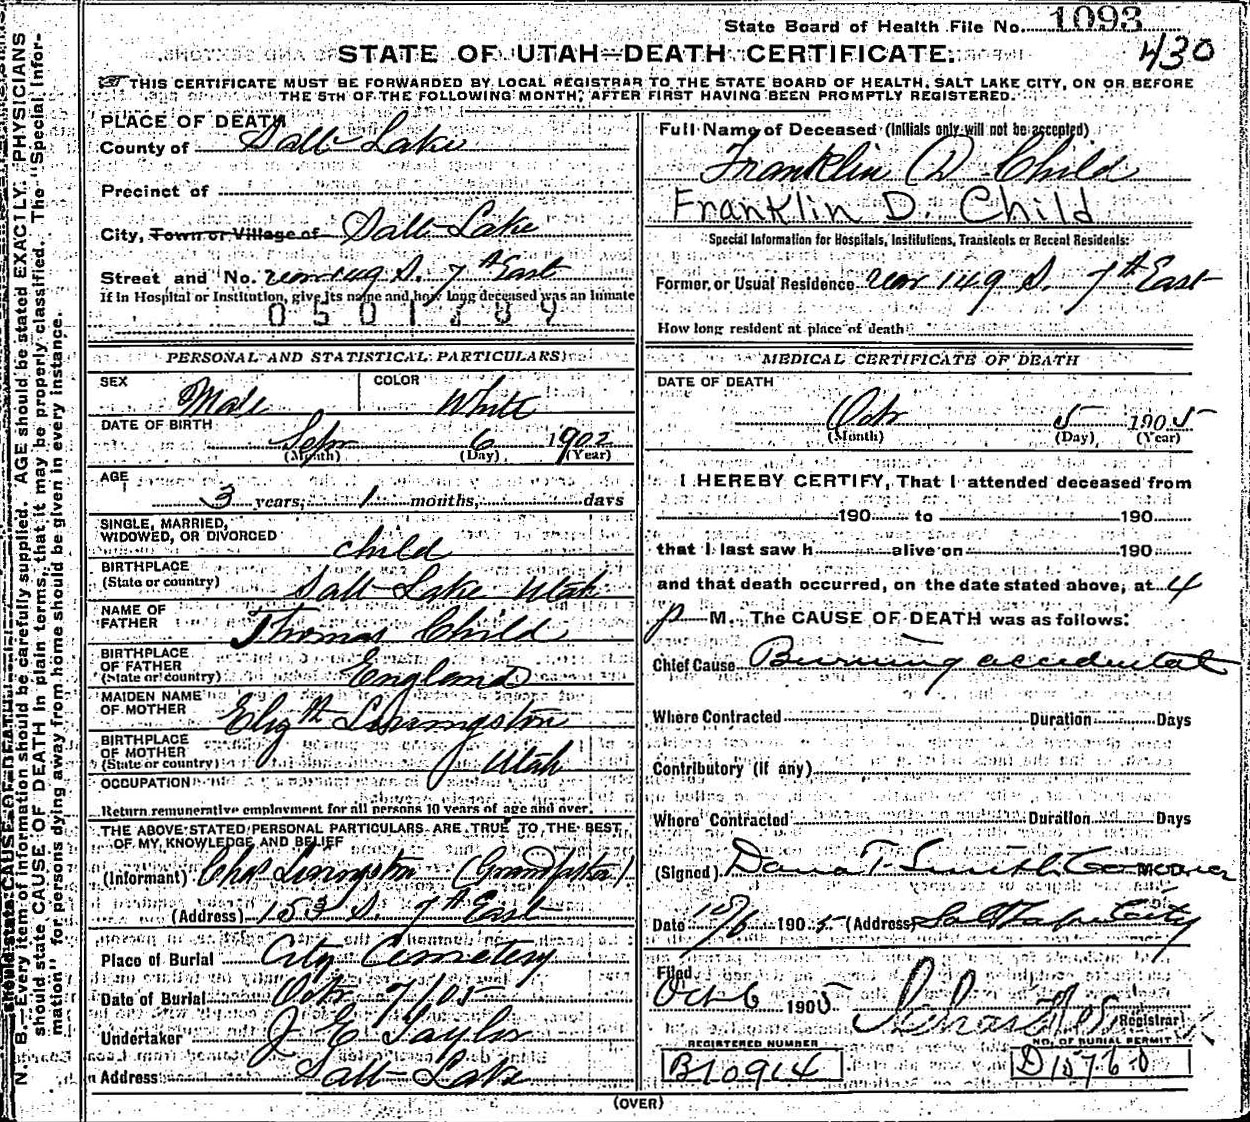 State Board of Health File No. 1093
430
STATE OF UTAH—DEATH CERTIFICATE.
THIS CERTIFICATE MUST BE FORWARDED BY LOCAL REGISTRAR TO THE STATE BOARD OF HEALTH, SALT LAKE CITY, ON OR BEFORE
THE 5TH OF THE FOLLOWING MONTH, AFTER FIRST HAVING BEEN PROMPTLY REGISTERED.
PLACE OF DEATH
County of Salt Lake
Precinct of
City, Town or Village of Salt Lake
Street and No. rear 149 S. 7th East
If in Hospital or Institution, give its name and how long deceased was an inmate
0501789
PERSONAL AND STATISTICAL PARTICULARS
SEX Male COLOR White
DATE OF BIRTH
Sep 6 1902
(Month) (Day) (Year)
AGE
3 years, 1 months, days
SINGLE, MARRIED,
WIDOWED, OR DIVORCED child
BIRTHPLACE
(State or country) Salt Lake Utah
NAME OF
FATHER Thomas Child
BIRTHPLACE
OF FATHER
(State or country) England
MAIDEN NAME
OF MOTHER Elizth Livingston
BIRTHPLACE
OF MOTHER
(State or country) Utah
OCCUPATION
Return remunerative employment for all persons 10 years of age and over.
THE ABOVE STATED PERSONAL PARTICULARS ARE TRUE TO THE BEST
OF MY KNOWLEDGE AND BELIEF
(Informant) Chas Livingston (Grandfather)
(Address) 153 S. 7th East
Place of Burial City Cemetery
Date of Burial Oct 7/05
Undertaker J E Taylor
Address Salt Lake
Full Name of Deceased (Initials only will not be accepted)
Franklin D. Child
Franklin D. Child
Special Information for Hospitals, Institutions, Transients or Recent Residents:
Former or Usual Residence rear 149 S. 7th East
How long resident at place of death
MEDICAL CERTIFICATE OF DEATH
DATE OF DEATH
Oct 5 1905
(Month) (Day) (Year)
I HEREBY CERTIFY, That I attended deceased from
190 to 190
that I last saw h alive on 190
and that death occurred, on the date stated above, at 4
p M. The CAUSE OF DEATH was as follows:
Chief Cause Burning accidental
Where Contracted Duration Days
Contributory (if any)
Where Contracted Duration Days
(Signed) Dana T. Smith Coroner
Date 10/6 1905 (Address) Salt Lake City
Filed
Oct 6 1905
Registrar
REGISTERED NUMBER
B10914
NO. OF BURIAL PERMIT
D15760
(OVER)
N. B.—Every item of information should be carefully supplied. AGE should be stated EXACTLY. PHYSICIANS
should state CAUSE OF DEATH in plain terms, that it may be properly classified. The "Special Information"
for persons dying away from home should be given in every instance.